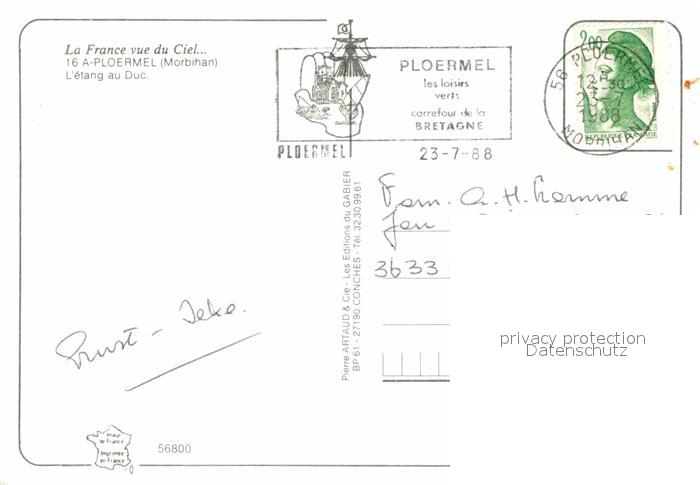 La France vue du Ciel...
16 A-PLOERMEL (Morbihan)
L'étang au Duc.
PLOERMEL
les loisirs
verts
carrefour de la
BRETAGNE
PLOERMEL
23-7-88
2,00
56 PLOERMEL
23-7
1988
MORBIHAN
REPUBLIQUE FRANÇAISE
Fam. A.H.
Jan
3633
Pierre ARTAUD & Cie - Les Editions du GABIER
BP 61 - 27190 CONCHES - Tél. 32.30.99.61
privacy protection
Datenschutz
Image
de France
Imprimée
en France
56800